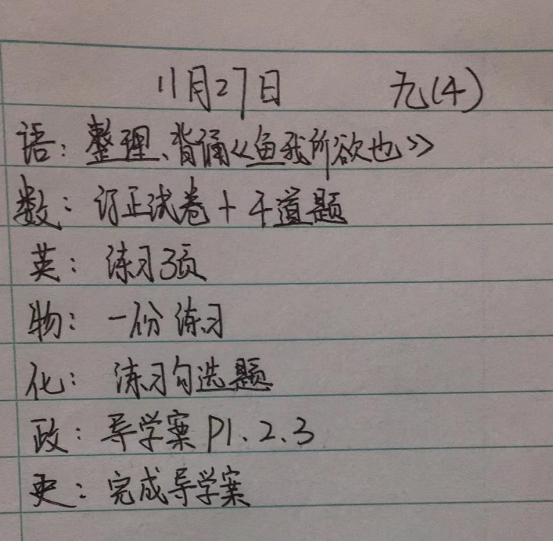 11月27日 九(4)
语：整理、背诵《鱼我所欲也》
数：订正试卷+4道题
英：练习3页
物：一份练习
化：练习勾选题
政：导学案P1.2.3
史：完成导学案